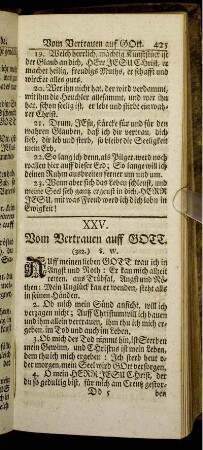 Vom Vertrauen auff GOtt. 425
19. Welch herrlich, mächtig Kunststück ist
der Glaub an dich, HErr JESU Christ, er
machet heilig, freudigs Muths, er schafft und
würcket alles guts.
20. Wer ihn nicht hat, der wird verdammt,
mit ihm die Heuchler allesammt, und wer ihn
hat, schon seelig ist, er lebt und stirbt ein wah-
rer Christ.
21. Drum, JEsu, stärcke für und für den
wahren Glauben, daß ich dir vertrau, dich
lieb, dir leb und sterb, so bleibt die Seeligkeit
mein Erb,
22. So lang ich denn, als Pilger, werd noch
wallen hier auff dieser Erd; So lange will ich
deinen Ruhm ausbreiten ferner um und um.
23. Wenn aber sich das Leben schleust, und
meine Seel sich gantz ergeußt in dich, HERR
JESU, mit was Freud werd ich dich lobn in
Ewigkeit!
XXV.
Vom Vertrauen auff GOTT.
(302.) S. W.
AUff meinen lieben GOTT trau ich in
Angst und Noth: Er kan mich allzeit
retten, aus Trübsal, Angst und Nö-
then: Mein Unglück kan er wenden, steht alls
in seinen Händen.
2. Ob mich mein Sünd anficht, will ich
verzagen nicht; Auff Christum will ich bauen
und ihm allein vertrauen, ihm thu ich mich er-
geben, im Tod und auch im Leben.
3. Ob mich der Tod nimmt hin, ist Sterben
mein Gewinn, und CHristus ist mein Leben,
dem thu ich mich ergeben: Ich sterb heut o-
der morgen, mein Seel wird GOtt versorgen.
4. O mein HERR JESU Christ, der
du so gedultig bist, für mich am Creutz gestor-
Dd 5 ben